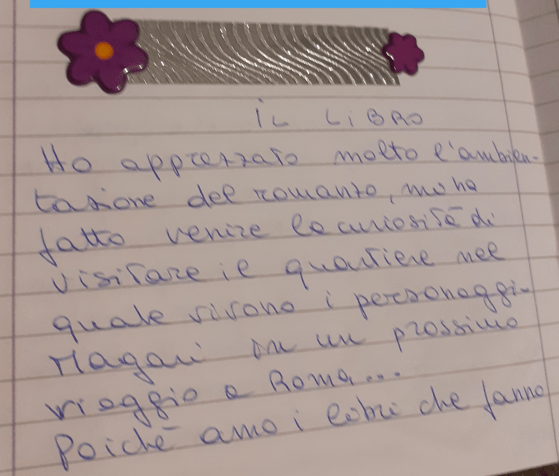 IL LIBRO
Ho apprezzato molto l'ambien-
tazione del romanzo, m'ha
fatto venire la curiosità di
visitare il quartiere nel
quale vivono i personaggi.
Magari in un prossimo
viaggio a Roma...
Poiché amo i libri che fanno